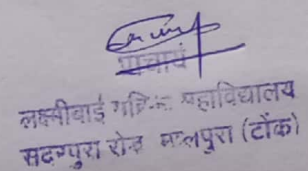 प्राचार्य
लक्ष्मीबाई महाविद्यालय
सदरपुरा रोड मालपुरा (टोंक)